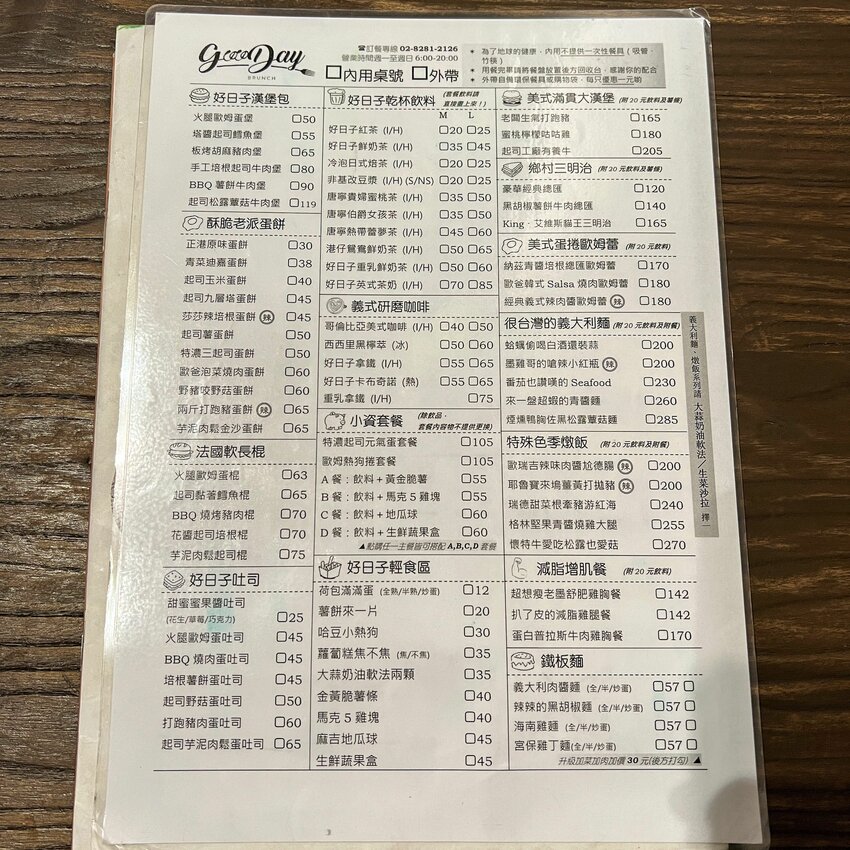 Good Day
BRUNCH
☎訂餐專線 02-8281-2126
營業時間週一至週日 6:00-20:00
□內用桌號 □外帶
* 為了地球的健康，內用不提供一次性餐具（吸管、竹筷）
* 用餐完畢請將餐盤放置後方回收台，感謝你的配合
* 外帶自備環保餐具或購物袋，每只優惠一元喲
好日子漢堡包
火腿歐姆蛋堡 □50
塔醬起司鱈魚堡 □55
板烤胡麻豬肉堡 □65
手工培根起司牛肉堡 □80
BBQ 薯餅牛肉堡 □90
起司松露蕈菇牛肉堡 □119
酥脆老派蛋餅
正港原味蛋餅 □30
青菜迪嘉蛋餅 □38
起司玉米蛋餅 □40
起司九層塔蛋餅 □45
莎莎辣培根蛋餅 辣 □45
起司薯蛋餅 □50
特濃三起司蛋餅 □50
歐爸泡菜燒肉蛋餅 □60
野豬咬野菇蛋餅 □60
兩斤打跑豬蛋餅 辣 □65
芋泥肉鬆金沙蛋餅 □65
法國軟長棍
火腿歐姆蛋棍 □63
起司黏著鱈魚棍 □65
BBQ 燒烤豬肉棍 □70
花醬起司培根棍 □70
芋泥肉鬆起司棍 □75
好日子吐司
甜蜜蜜果醬吐司
(花生/草莓/巧克力) □25
火腿歐姆蛋吐司 □45
BBQ 燒肉蛋吐司 □45
培根薯蛋吐司 □45
起司野菇蛋吐司 □50
打跑豬肉蛋吐司 □60
起司芋泥肉鬆蛋吐司 □65
好日子乾杯飲料 (套餐飲料請直接畫上來！)
M L
好日子紅茶 (I/H) □20 □25
好日子鮮奶茶 (I/H) □35 □45
冷泡日式焙茶 (I/H) □20 □25
非基改豆漿 (I/H) (S/NS) □20 □25
唐寧貴婦蜜桃茶 (I/H) □35 □50
唐寧伯爵女孩茶 (I/H) □35 □50
唐寧熱帶蕾夢茶 (I/H) □45 □60
港仔鴛鴦鮮奶茶 (I/H) □50 □60
好日子重乳鮮奶茶 (I/H) □50 □60
好日子英式茶奶 (I/H) □70 □85
義式研磨咖啡
哥倫比亞美式咖啡 (I/H) □40 □50
西西里黑檸萃 (冰) □50 □60
好日子拿鐵 (I/H) □55 □65
好日子卡布奇諾 (熱) □55 □65
重乳拿鐵 (I/H) □75
小資套餐 (除飲品，套餐內容物不提供更換)
特濃起司元氣蛋套餐 □105
歐姆熱狗捲套餐 □105
A 餐：飲料＋黃金脆薯 □55
B 餐：飲料＋馬克 5 雞塊 □55
C 餐：飲料＋地瓜球 □60
D 餐：飲料＋生鮮蔬果盒 □60
▲點購任一主餐皆可搭配 A,B,C,D 套餐
好日子輕食區
荷包滿滿蛋 (全熟/半熟/炒蛋) □12
薯餅來一片 □20
哈豆小熱狗 □30
蘿蔔糕焦不焦 (焦/不焦) □35
大蒜奶油軟法兩顆 □35
金黃脆薯條 □40
馬克 5 雞塊 □40
麻吉地瓜球 □45
生鮮蔬果盒 □45
美式滿貫大漢堡 (附 20 元飲料及薯條)
老闆生氣打跑豬 □165
蜜桃檸檬咕咕雞 □180
起司工廠有養牛 □205
鄉村三明治 (附 20 元飲料及薯條)
豪華經典總匯 □120
黑胡椒薯餅牛肉總匯 □140
King‧艾維斯貓王三明治 □165
美式蛋捲歐姆蕾 (附 20 元飲料)
納茲青醬培根總匯歐姆蕾 □170
歐爸韓式 Salsa 燒肉歐姆蕾 □180
經典義式辣肉醬歐姆蕾 辣 □180
很台灣的義大利麵 (附 20 元飲料及附餐)
蛤蠣偷喝白酒還裝蒜 □200
墨雞哥的嗆辣小紅瓶 辣 □200
番茄也讚嘆的 Seafood □230
來一盤超蝦的青醬麵 □260
煙燻鴨胸佐黑松露蕈菇麵 □285
特殊色季燉飯 (附 20 元飲料及附餐)
歐瑞吉辣味肉醬尬德腸 辣 □200
耶魯寶來塢薑黃打拋豬 辣 □200
瑞德甜菜根牽豬游紅海 □240
格林堅果青醬燒雞大腿 □255
懷特牛愛吃松露也愛菇 □270
義大利麵、燉飯系列請 大蒜奶油軟法／生菜沙拉 擇一
減脂增肌餐 (附 20 元飲料)
超想瘦老墨舒肥雞胸餐 □142
扒了皮的減脂雞腿餐 □142
蛋白普拉斯牛肉雞胸餐 □170
鐵板麵
義大利肉醬麵 (全/半/炒蛋) □57 □
辣辣的黑胡椒麵 (全/半/炒蛋) □57 □
海南雞麵 (全/半/炒蛋) □57 □
宮保雞丁麵 (全/半/炒蛋) □57 □
升級加菜加肉加價 30 元(後方打勾) ▲
3